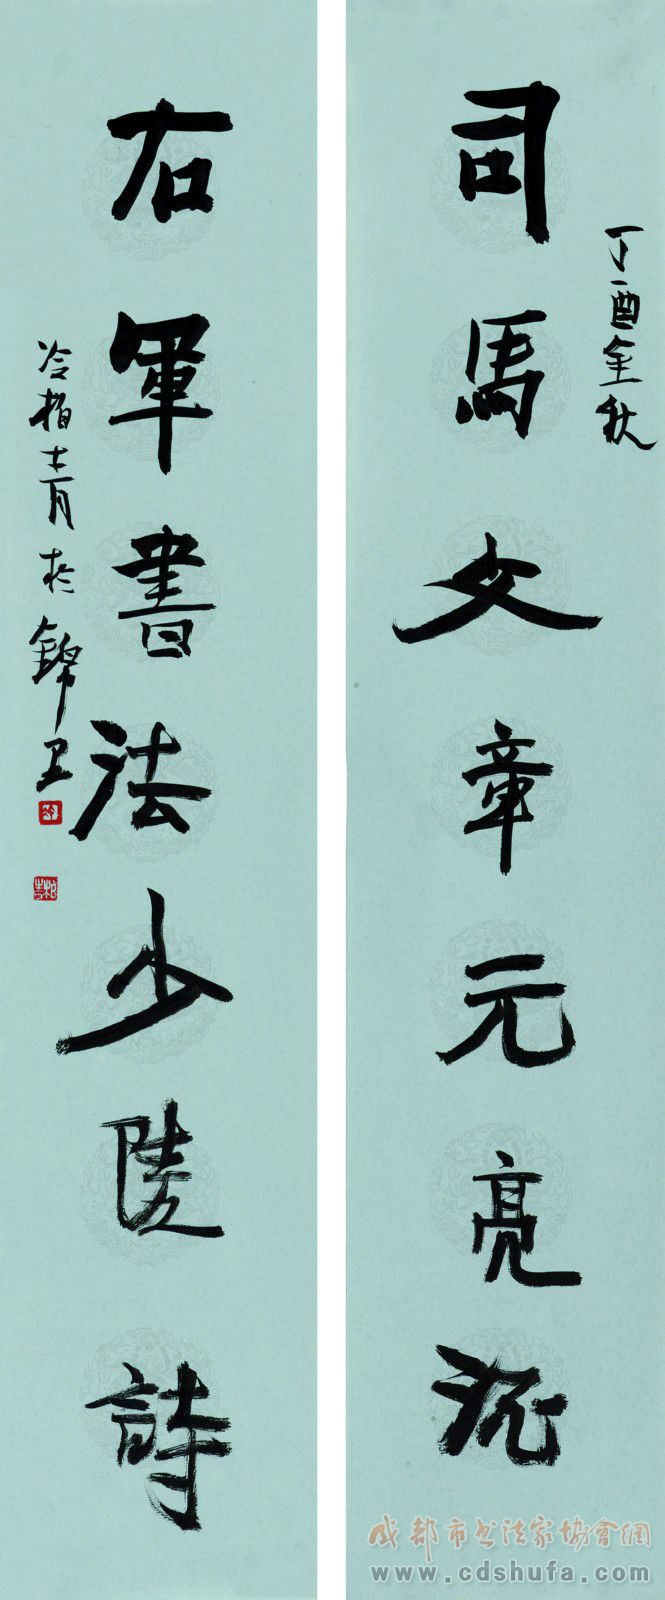 丁酉金秋
司馬文章元亮酒
右軍書法少陵詩
冷柏青於錦里
成都市书法家協會網
www.cdshufa.com